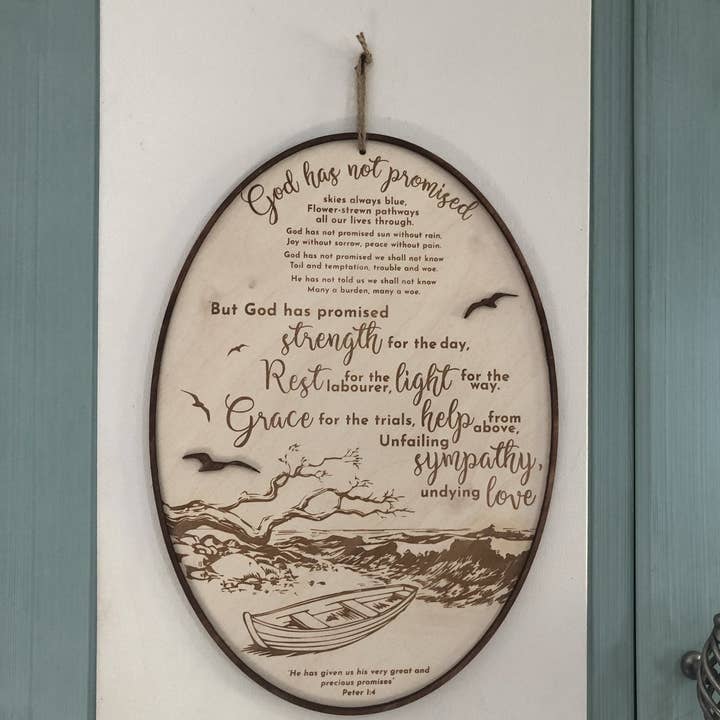 God has not promised
skies always blue,
Flower-strewn pathways
all our lives through.
God has not promised sun without rain,
Joy without sorrow, peace without pain.
God has not promised we shall not know
Toil and temptation, trouble and woe.
He has not told us we shall not know
Many a burden, many a woe.
But God has promised
strength for the day,
Rest for the labourer, light for the way.
Grace for the trials, help from above,
Unfailing
sympathy,
undying love
"He has given us his very great and
precious promises"
Peter 1:4